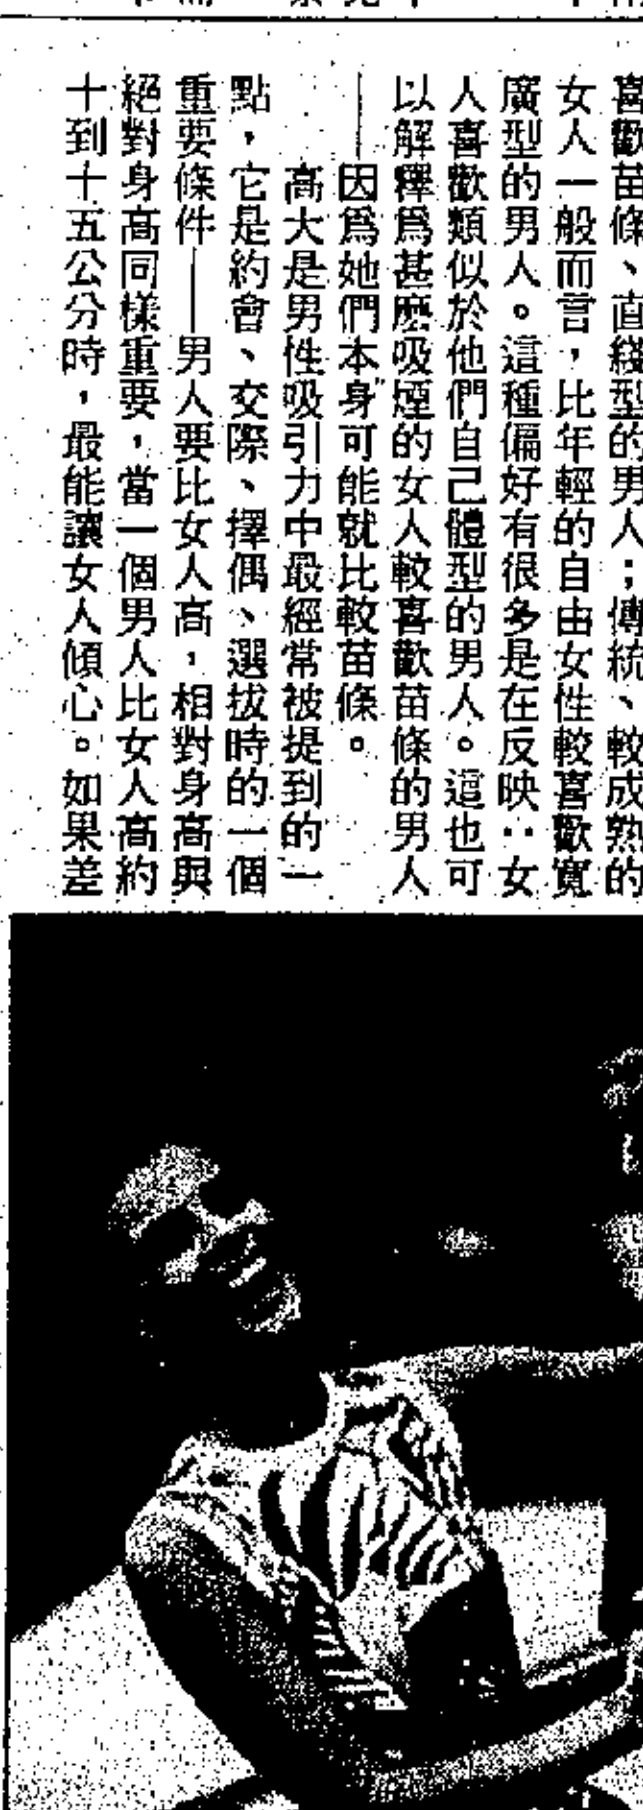 喜歡苗條、直綫型的男人；傳統、較成熟的
女人一般而言，比年輕的自由女性較喜歡寬
廣型的男人。這種偏好有很多是在反映：女
人喜歡類似於他們自己體型的男人。這也可
以解釋爲甚麽吸煙的女人較喜歡苗條的男人
——因爲她們本身可能就比較苗條。
高大是男性吸引力中最經常被提到的一
點，它是約會、交際、擇偶、選拔時的一個
重要條件——男人要比女人高，相對身高與
絕對身高同樣重要，當一個男人比女人高約
十到十五公分時，最能讓女人傾心。如果差